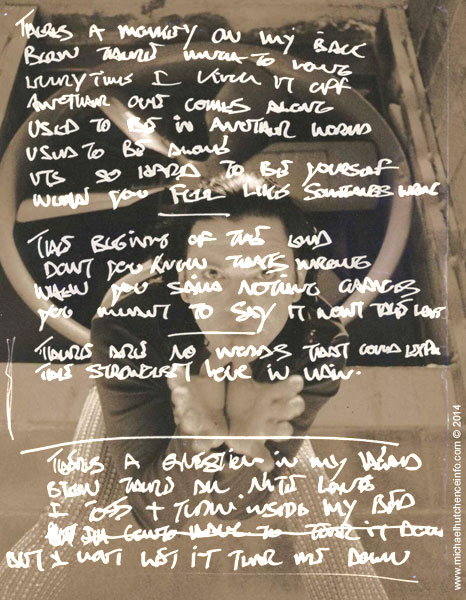 THERES A MONKEY ON MY BACK
BEEN THERE MUCH TO LONG
EVERYTIME I KICK IT OFF
ANOTHER ONE COMES ALONG
USED TO BE IN ANOTHER WORLD
USED TO BE ALONE
ITS SO HARD TO BE YOURSELF
WHEN YOU FEEL LIKE SOMEONES
THE BEGINING OF THE END
DONT YOU KNOW THATS WRONG
WHEN YOU SAID NOTHING CHANGES
YOU MEANT TO SAY IT WONT TAKE LONG
THERE ARE NO WORDS THAT COULD EXPLAIN
THE STRONGEST LOVE IN VAIN.
THERES A QUESTION IN MY HEAD
BEEN THERE ALL NITE LONG
I TOSS + TURN INSIDE MY BED
TO TEAR IT DOWN
BUT I WONT LET IT TEAR ME DOWN
www.michaelhutchenceinfo.com © 2014